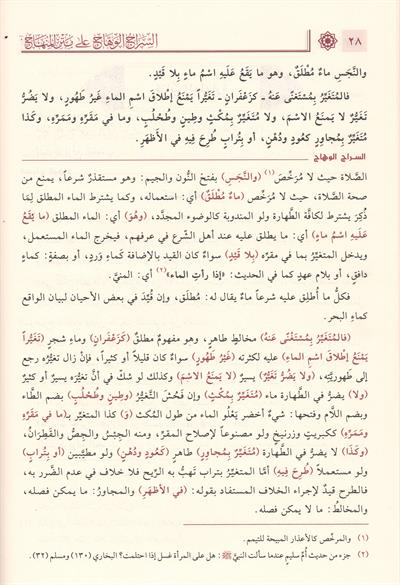 ٢٨
السِّرَاجُ الوَهَّاجُ عَلَى مَتْنِ المِنْهَاجِ
والنَّجَسِ ماءٌ مُطْلَقٌ، وهو ما يَقَعُ عَلَيهِ اسْمُ ماءٍ بِلا قَيْدٍ.
فالمُتَغَيِّرُ بِمُسْتَغْنًى عَنْهُ ـ كَزَعْفَرانٍ ـ تَغَيُّراً يَمْنَعُ إطْلاقَ اسْمِ الماءِ غَيرُ طَهُورٍ، ولا يَضُرُّ
تَغَيُّرٌ لا يَمنَعُ الاسْمَ، ولا مُتَغَيِّرٌ بِمُكْثٍ وطِينٍ وطُحْلُبٍ، وما في مَقَرِّهِ ومَمَرِّهِ، وكَذا
مُتَغَيِّرٌ بِمُجاوِرٍ كَعُودٍ ودُهْنٍ، أو بِتُرابٍ طُرِحَ فِيهِ في الأَظهَرِ.
السراج الوهاج
الصَّلاة حيث لا مُرَخِّصَ(١) (والنَّجَسِ) بفتح النُّون والجيم: وهو مستقذرٌ شرعاً، يمنع من
صحة الصَّلاة، حيث لا مُرَخِّص (ماءٌ مُطْلَقٌ) أي: استعماله، وكما يشترط الماء المطلق لِمَا
ذُكِرَ يشترط لكافَّة الطَّهارة ولو المندوبة كالوضوء المجدَّد، (وهُوَ) أي: الماء المطلق (ما يَقَعُ
عَلَيهِ اسْمُ ماءٍ) أي: ما يطلق عليه عند أهل الشَّرع في عرفهم، فيخرج الماء المستعمل،
ويدخل المتغيّر بما في مقرِّه (بِلا قَيْدٍ) سواءٌ كان القيد بالإضافة كماءِ وَردٍ، أو بصفةٍ: كماءٍ
دافقٍ، أو بلام عهدٍ كما في الحديث: «إذا رأت الماء»(٢) أي: المنيَّ.
فكلُّ ما أُطلِق عليه شرعاً ماءٌ يقال له: مطلق، وإن قُيِّدَ في بعض الأحيان لبيان الواقع كماءِ
البحر.
(فالمُتَغَيِّرُ بِمُسْتَغْنًى عَنْهُ) مخالطٍ طاهرٍ، وهو مفهومُ مطلقٌ (كَزَعْفَرانٍ) وماءِ شجرٍ (تَغَيُّراً
يَمْنَعُ إطْلاقَ اسْمِ الماءِ) عليه لكثرته (غَيرُ طَهُورٍ) سواءٌ كان قليلاً أو كثيراً، فإنْ زال تغيُّره رجع
إلى طهوريَّته، (ولا يَضُرُّ تَغَيُّرٌ) يسيرٌ (لا يَمنَعُ الاسْمَ) وكذلك لو شكَّ في أنَّ تغيُّره يسيرٌ أو كثيرٌ
(ولا) يضرُّ في الطَّهارة ماء (مُتَغَيِّرٌ بِمُكْثٍ) وإن فَحُشَ التَّغيُّر (وطِينٍ وطُحْلُبٍ) بضم الطَّاء
وبضم اللَّام وفتحها: شيءٌ أخضر يَعْلُو الماء من طول المُكث (وَ) كذا المتغيّر بـ(ما في مَقَرِّهِ
ومَمَرِّهِ) ككبريتٍ وزرنيخٍ ولو مصنوعاً لإصلاح المقرِّ، ومنه الجِبْسُ والجِصُّ والقَطِرَانُ،
(وكَذا) لا يضرُّ في الطَّهارة (مُتَغَيِّرٌ بِمُجاوِرٍ) طاهرٍ (كَعُودٍ ودُهْنٍ) ولو مطيَّبين (أو بِتُرابٍ)
ولو مستعملاً (طُرِحَ فِيهِ) أمَّا المتغيّر بتراب تَهبُّ به الرِّيح فلا خلاف في عدم الضَّرر به،
فالطرح قيدٌ لإجراء الخلاف المستفاد بقوله: (في الأَظهَرِ) والمجاورُ: ما يمكن فصله،
والمخالطُ: ما لا يمكن.
(١) والمرخّص كالأعذار المبيحة للتيمم.
(٢) جزء من حديث أُمِّ سليم عندما سألت النبيَّ ﷺ: هل على المرأة غسل إذا احتلمت؟ البخاري (١٣٠) ومسلم (٣٢).